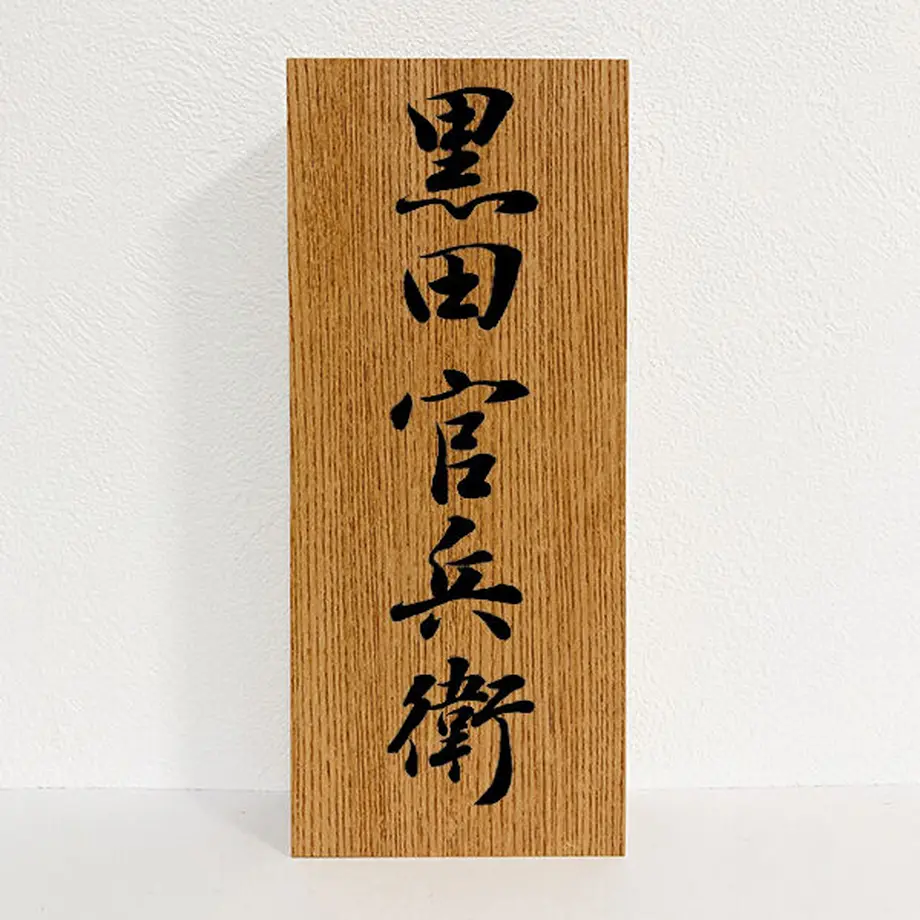 黒田官兵衛